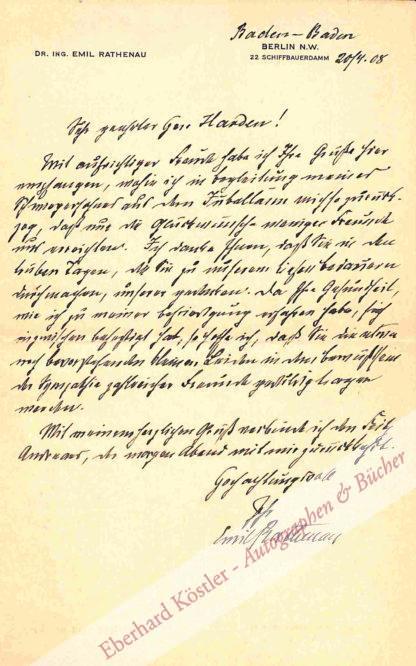 Baden-Baden
DR. ING. EMIL RATHENAU
BERLIN N.W.
22 SCHIFFBAUERDAMM 20/4. 08
Sehr geehrter Herr Harden!
Mit aufrichtiger Freude habe ich Ihre Grüße hier
empfangen, wohin ich in Begleitung meiner
aus dem zurück-
zog, daß nur die Glückwünsche weniger Freunde
uns erreichten. Ich danke Ihnen, daß Sie in den
trüben Tagen, die Sie zu unserem Bedauern
durchmachen, unserer gedenken. Da Ihre Gesundheit,
wie ich zu meiner Befriedigung erfahren habe, sich
inzwischen befestigt hat, so hoffe ich, daß Sie die etwa
noch bevorstehenden kleinen Leiden in dem Bewußtsein
der Sympathie zahlreicher Freunde geduldig tragen
werden.
Mit meinem herzlichen Gruß verbinde ich den
der morgen Abend mit mir zurückkehrt.
Hochachtungsvoll
Ihr
Emil Rathenau
Eberhard Köstler - Autographen & Bücher